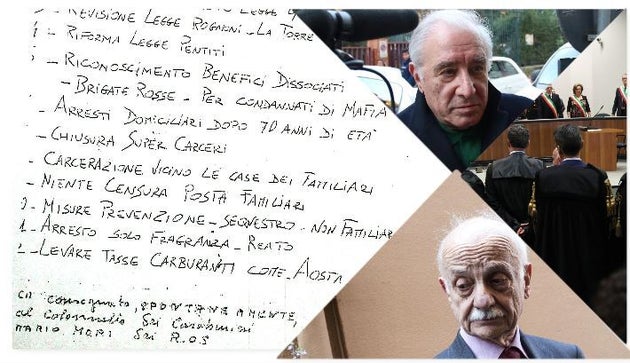 - REVISIONE LEGGE ROGNONI - LA TORRE
- RIFORMA LEGGE PENTITI
- RICONOSCIMENTO BENEFICI DISSOCIATI
- BRIGATE ROSSE - PER CONDANNATI DI MAFIA
- ARRESTI DOMICILIARI DOPO 70 ANNI DI ETÀ
- CHIUSURA SUPER CARCERI
- CARCERAZIONE VICINO LE CASE DEI FAMILIARI
- NIENTE CENSURA POSTA FAMILIARI
- MISURE PREVENZIONE - SEQUESTRO - NON FAMILIARI
- ARRESTO SOLO FRAGRANZA - REATO
- LEVARE TASSE CARBURANTI COME - AOSTA
consegnato, SPONTANEAMENTE,
al Colonnello dei Carabinieri
MARIO MORI dei R.O.S